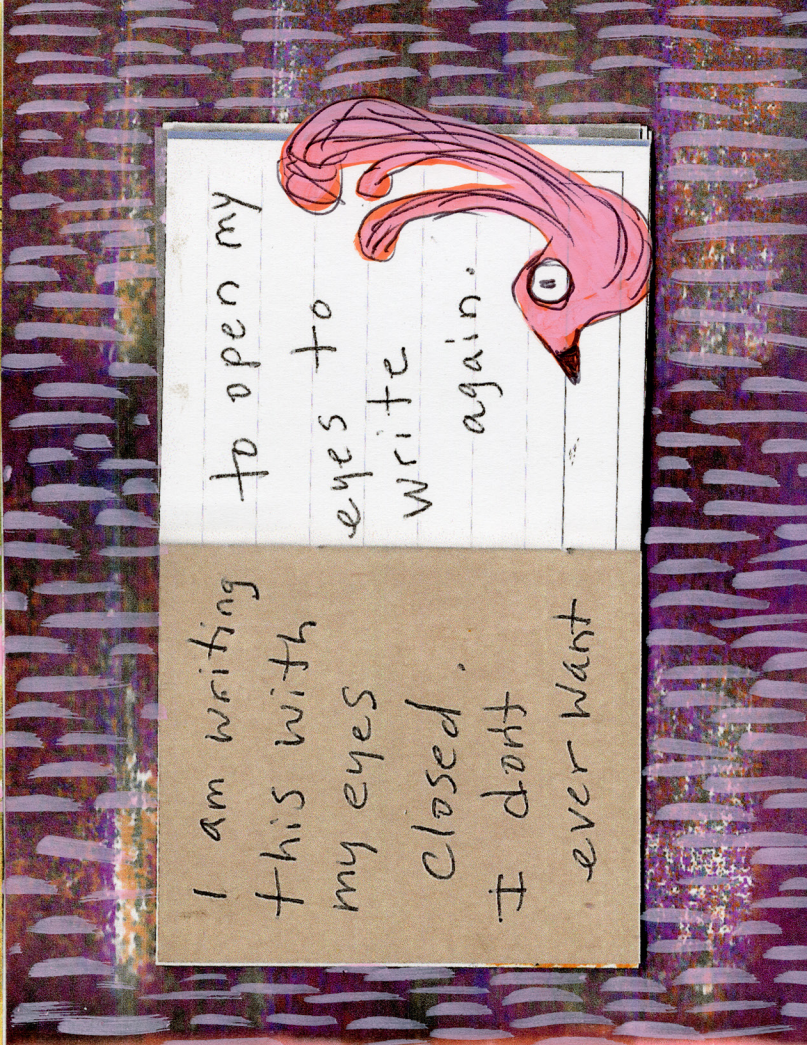 I am writing
this with
my eyes
closed.
I dont
ever want
to open my
eyes to
write
again.